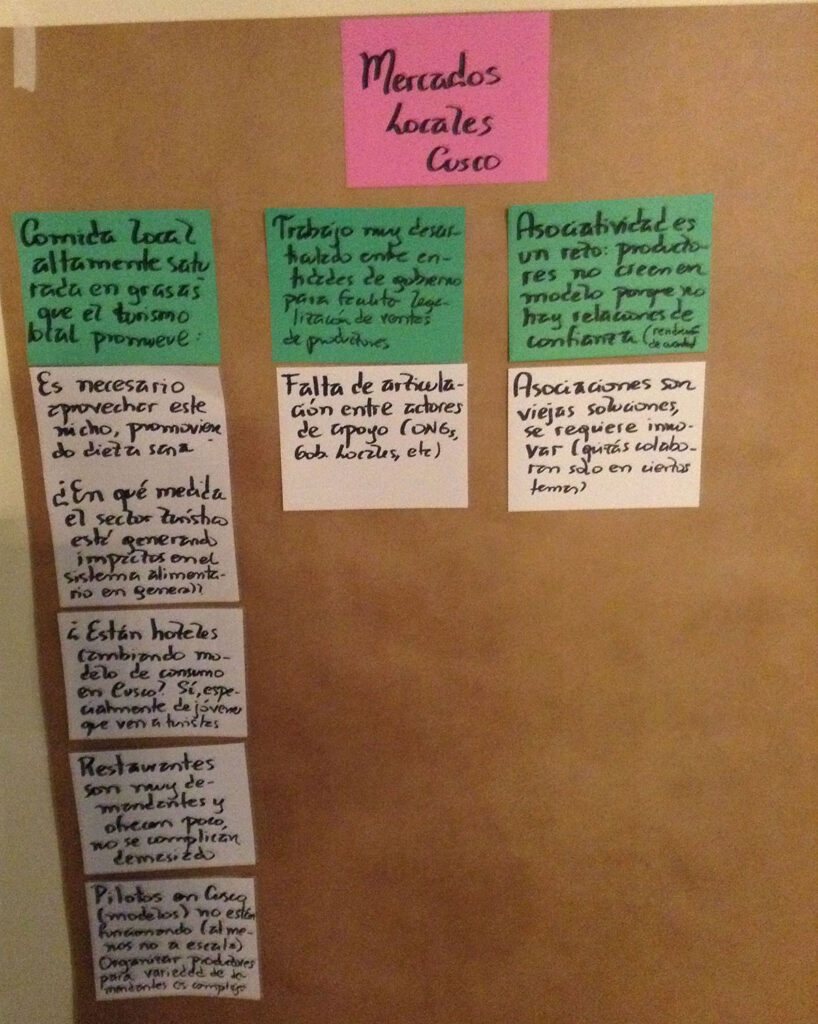 Mercados
Locales
Cusco
Comida local
altamente satu
rada en grasas
que el turismo
local promueve:
Es necesario
aprovechar este
nicho, promovien
do dieta sana
¿En qué medida
el sector turístico
está generando
impactos en el
sistema alimenta-
rio en general?
¿Están hoteles
cambiando mo-
delo de consumo
en Cusco? Sí, espe-
cialmente de jóvenes
que ven a turistas
Restaurantes
son muy de-
mandantes y
ofrecen poco,
no se complican
demasiado
Pilotos en Cusco
(modelos) no están
funcionando (al me
nos no a escala)
Organizar productores
para variedad de de-
mandantes es complejo
Trabajo muy desar-
ticulado entre en-
tidades de gobierno
para facilitar lega-
lización de ventas
de productores
Falta de articula-
ción entre actores
de apoyo (ONGs,
Gob. Locales, etc)
Asociatividad es
un reto: producto-
res no creen en
modelo porque no
hay relaciones de
confianza (rendición
de cuentas)
Asociaciones son
viejas soluciones,
se requiere inno-
var (quizás colabo-
ran solo en ciertos
temas)